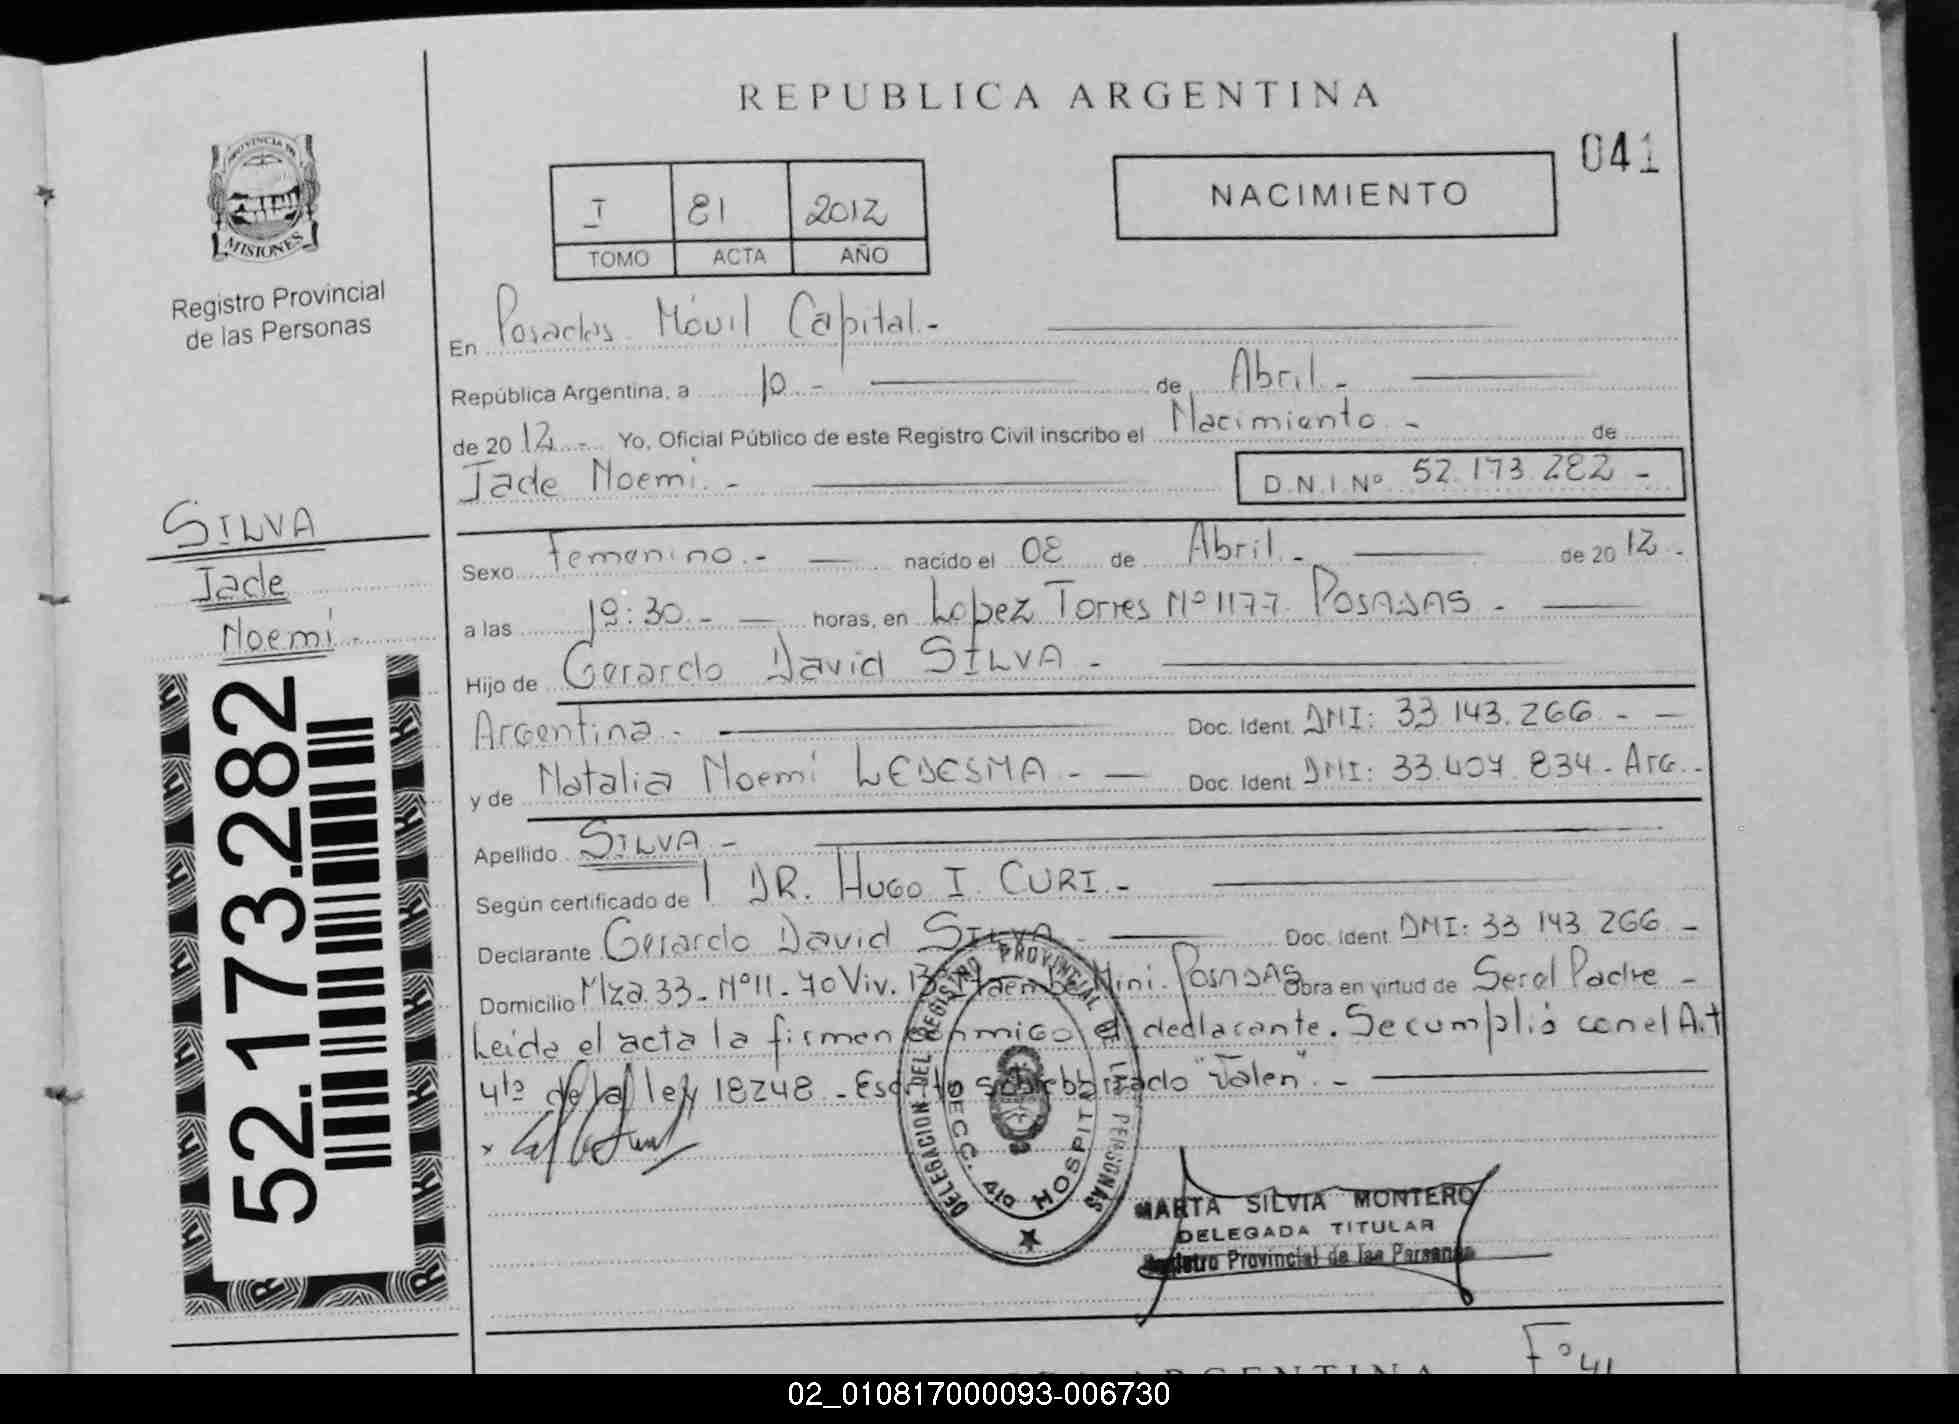 REPUBLICA ARGENTINA
041
PROVINCIA DE
MISIONES
Registro Provincial
de las Personas
I 81 2012
TOMO ACTA AÑO
NACIMIENTO
En Posadas Móvil Capital.-
República Argentina, a 10.- de Abril.-
de 2012.- Yo, Oficial Público de este Registro Civil inscribo el Nacimiento.- de
Jade Noemi.- D.N.I.Nº 52.173.282-
SILVA
Jade
Noemi.-
52.173.282
Sexo Femenino.- nacido el 08 de Abril.- de 2012.-
a las horas, en Lopez Torres Nº 1177. POSADAS.-
Hijo de Gerardo David SILVA-
Argentina.- Doc. Ident. DNI: 33.143.266.-
y de Natalia Noemi LEDESMA.- Doc. Ident. DNI: 33.407.834-Arg.-
Apellido SILVA-
Según certificado de DR. HUGO I. CURI.-
Declarante Gerardo David SILVA- Doc. Ident. DNI: 33.143.266.-
Domicilio Mza.33-Nº11-70Viv. Mini. POSADAS Obra en virtud de Ser el Padre-
Leida el acta la firman conmigo el declarante. Se cumplió con el Art
4to de la ley 18248.-Escrito sobreborrado "Valen".-
DELEGACION DEL REGISTRO PROVINCIAL DE LAS PERSONAS
SECC. 4ta HOSPITAL
MARTA SILVIA MONTERO
DELEGADA TITULAR
Registro Provincial de las Personas
ARGENTINA
Fº 41
02_010817000093-006730